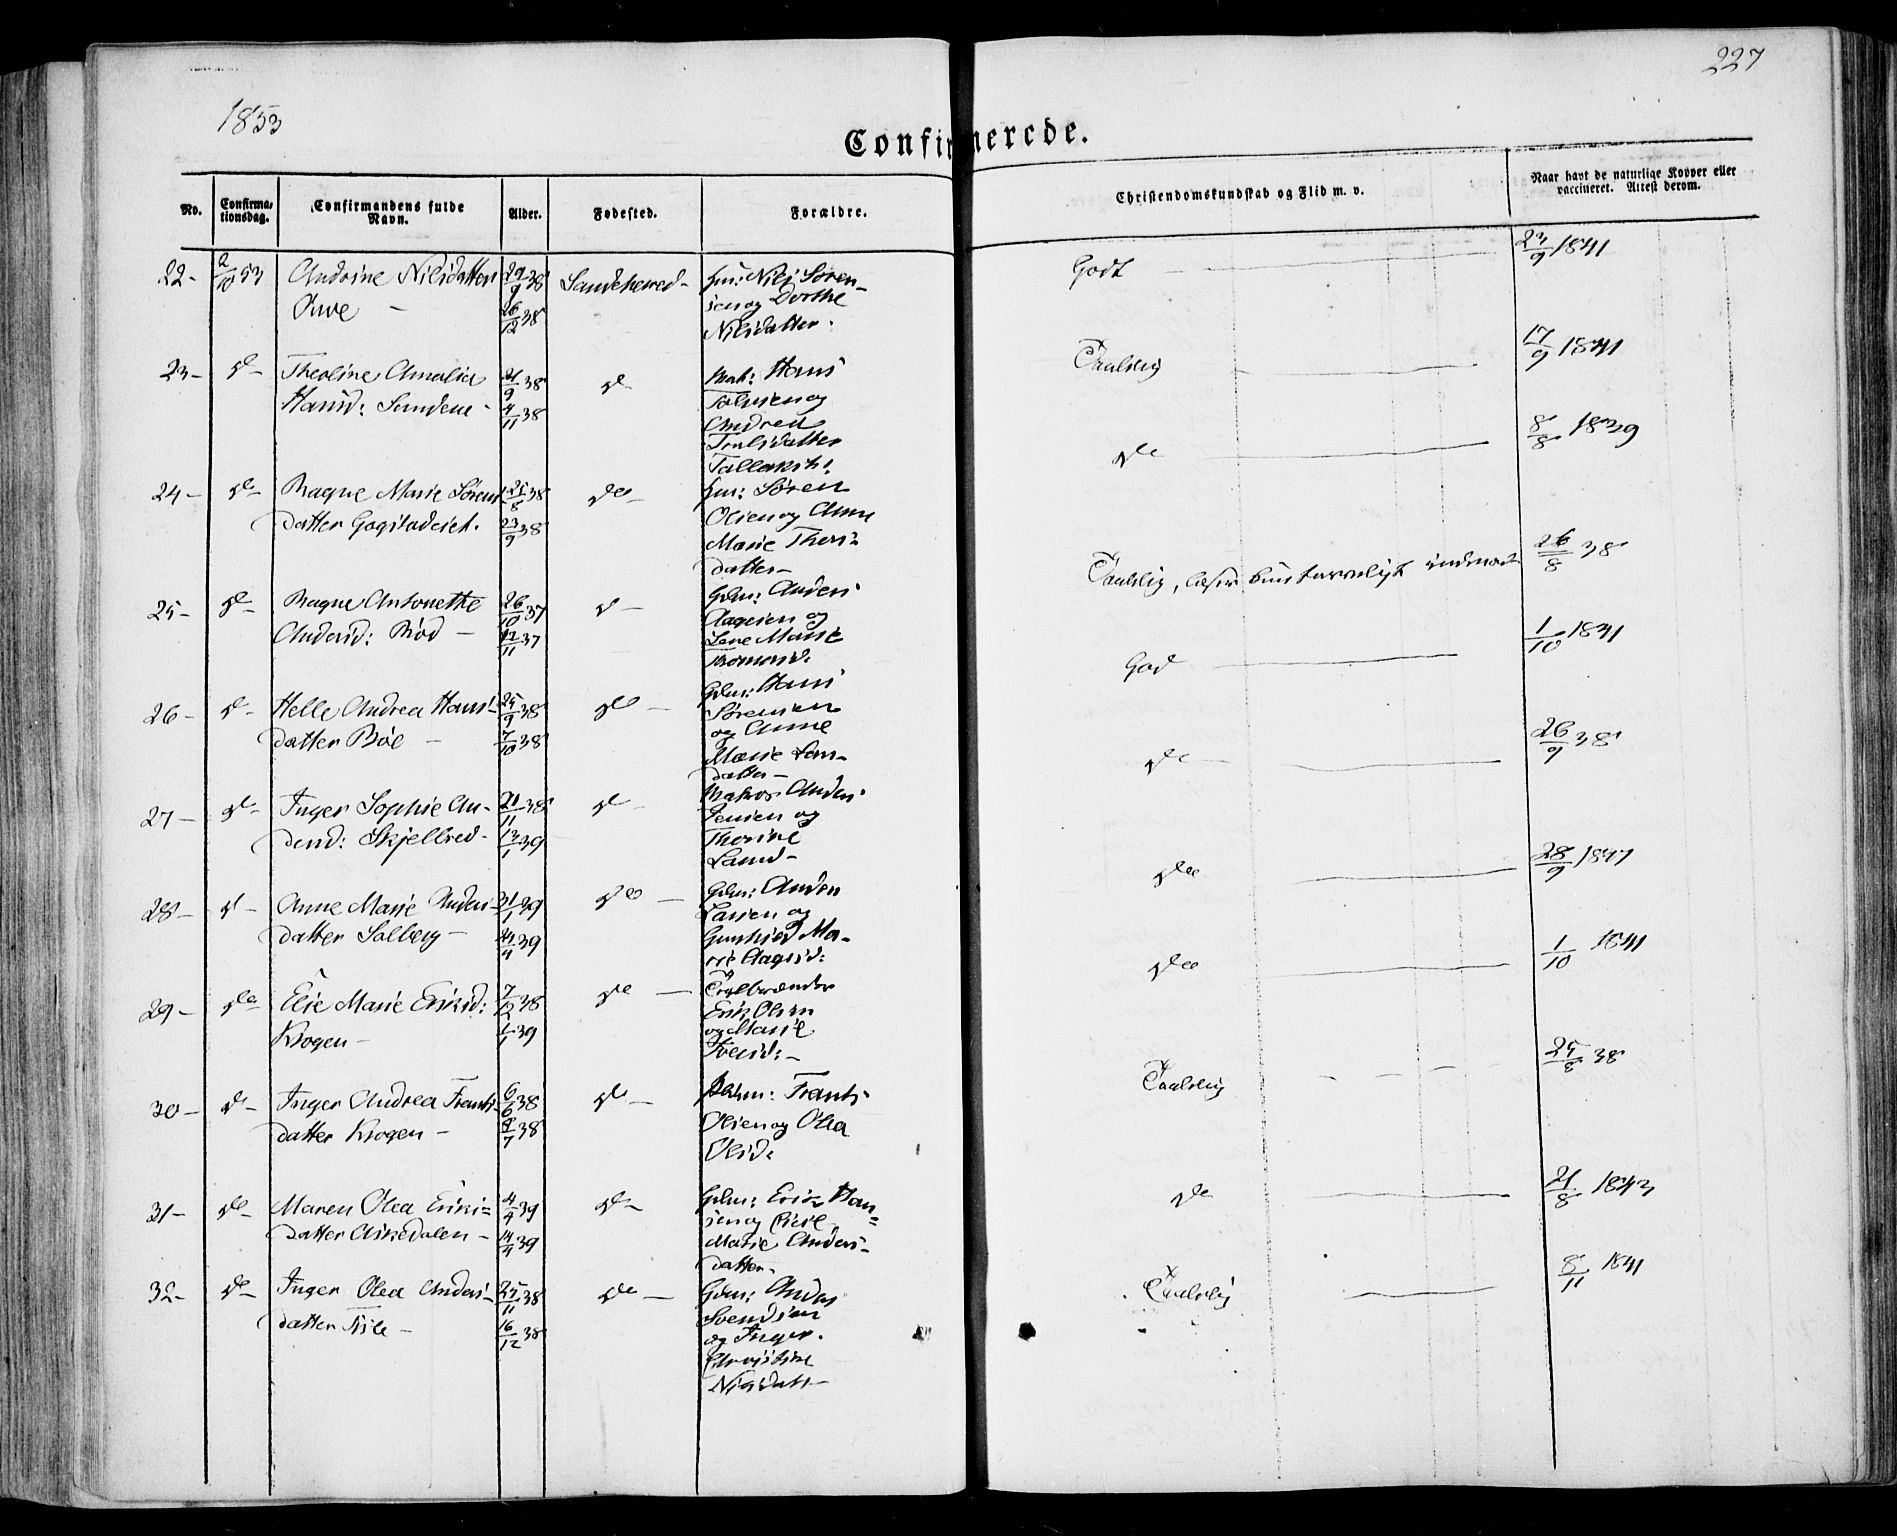 227
1853
Confirmerede.
No.
Confirma-
tionsdag.
Confirmandens fulde
Navn.
Alder.
Fødested.
Forældre.
Christendomskundskab og Flid m. v.
Naar havt de naturlige Kopper eller
vaccineret. Attest derom.
22- 2/10 53 Andrine Nilsdatter 29/9 38 Sandeherred- Hm: Nils Søren- Godt 23/9 1841
26/12 38 sen og Dorthe
Nilsdatter.
23- do- Theoline Amalia 21/9 38 do Hans Taalelig 17/9 1841
Hansd: Sundene- 4/11 38 og
Andrea
datter
24- do- Ragne Marie Sørens 25/8 38 do- Hm: Søren do 8/8 1839
datter 23/9 38 Olsen og Anne
Marie Thors-
datter-
25- do- Ragne Antonette 26/10 37 do- Gdm: Anders Taalelig, læser 26/8 38
Andersd: Rød- 37 Aagesen og
Lene Marie
26- do- Helle Andrea Hans- 25/9 38 do- Gdm: Hans God 1/10 1841
datter Bøe- 7/10 38 Sørensen
og Anne
Marie Lars-
datter-
27- do- Inger Sophie An- 21/11 38 do- Matros Anders do 26/9 38
dersd: Skjellred- 13/1 39 Jensen og
Thorine
Larsd-
28- do- Anne Marie Anders- 31/1 39 do- Gdm: Anders do 28/9 1847
datter Solberg- 39 Larsen og
Gunhild Ma-
rie Aagesd:
29- do Elie Marie Eriksd: 7/12 38 do- Teglbrænder do 1/10 1841
Krogen- 1/1 39 Erik Olsen
og Marie
30- do- Inger Andrea Frants- 6/6 38 do- Frants Taalelig 25/8 38
datter Krogen- 8/7 38 Olsen og Olea
Olsd:
31- do- Maren Olea Eriks- 4/4 39 do- Gdm: Erik Han- do 21/8 1843
datter Askedalen- 14/4 39 sen og
Marie Anders-
datter-
32- do- Inger Olea Anders- 25/11 38 do- Gdm: Anders Taalelig 8/11 1841
datter 16/12 38 Svendsen
og Inger
Christine